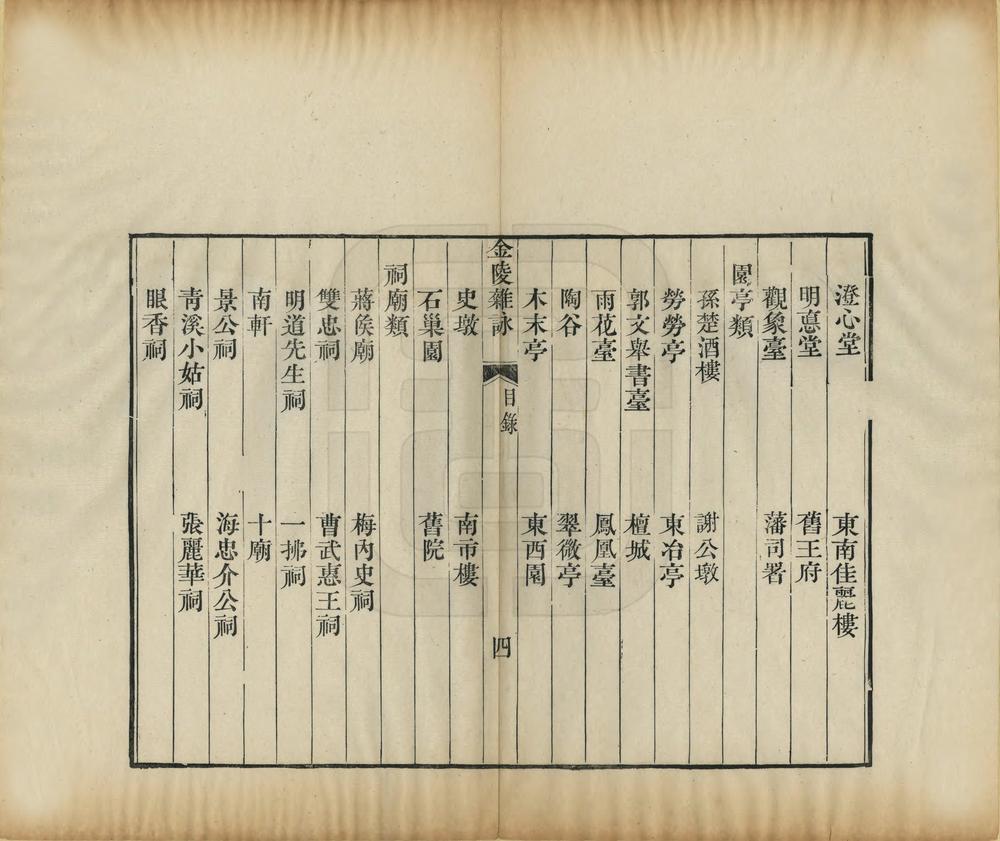 澄心堂　東南佳麗樓
明悳堂　舊王府
觀象臺　藩司署
園亭類
孫楚酒樓　謝公墩
勞勞亭　東冶亭
郭文舉書臺　檀城
雨花臺　鳳凰臺
陶谷　翠微亭
木末亭　東西園
金陵雜詠　目錄　四
史墩　南市樓
石巢園　舊院
祠廟類
蔣侯廟　梅內史祠
雙忠祠　曹武惠王祠
明道先生祠　一拂祠
南軒　十廟
景公祠　海忠介公祠
靑溪小姑祠　張麗華祠
眼香祠